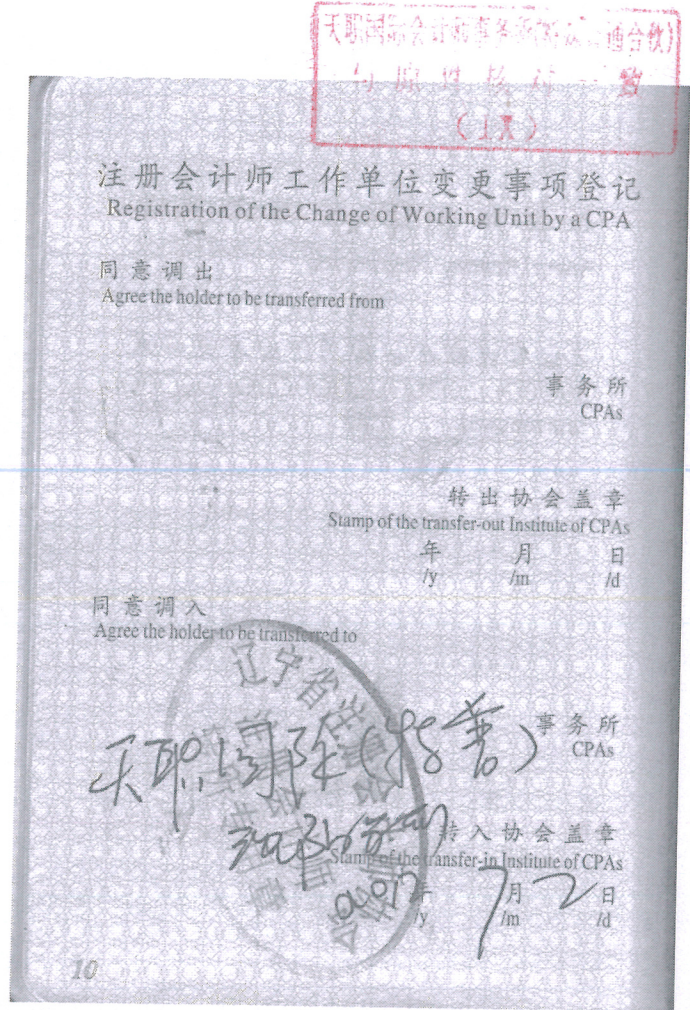 天职国际会计师事务所(特殊普通合伙)
与原件核对一致
(1X)
注册会计师工作单位变更事项登记
Registration of the Change of Working Unit by a CPA
同意调出
Agree the holder to be transferred from
事务所
CPAs
转出协会盖章
Stamp of the transfer-out Institute of CPAs
年 月 日
/y /m /d
同意调入
Agree the holder to be transferred to
辽宁省注册会计师协会
天职国际(特普) 事务所
CPAs
沈阳分所
转入协会盖章
Stamp of the transfer-in Institute of CPAs
2012年 7月 2日
/y /m /d
10